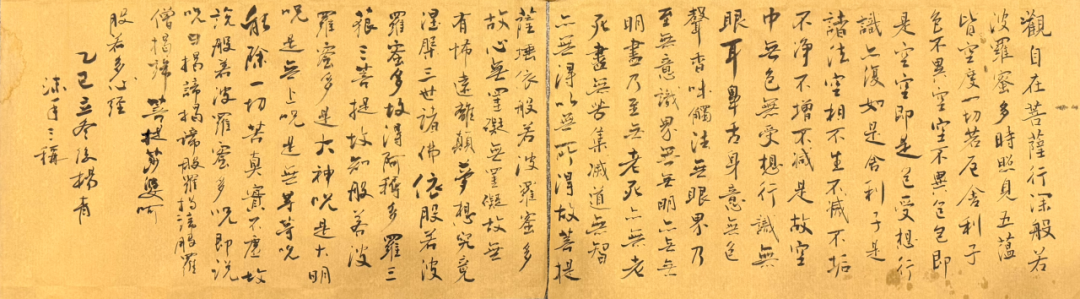 觀自在菩薩行深般若
波羅蜜多時照見五蘊
皆空度一切苦厄舍利子
色不異空空不異色色即
是空空即是色受想行
識亦復如是舍利子是
諸法空相不生不滅不垢
不净不增不减是故空
中無色無受想行識無
眼耳鼻舌身意無色
聲香味觸法無眼界乃
至無意識界無無明亦無無
明盡乃至無老死亦無老
死盡無苦集滅道無智
亦無得以無所得故菩提
薩埵依般若波羅蜜多
故心無罣礙無罣礙故無
有怖遠離顛夢想究竟
涅槃三世諸佛依般若波
羅蜜多故得阿耨多羅三
藐三菩提故知般若波
羅蜜多是大神呪是大明
呪是無上呪是無等等呪
能除一切苦真實不虛故
說般若波羅蜜多呪即說
呪曰揭諦揭諦般羅揭諦般羅
僧揭諦菩提薩婆呵
般若多心經
乙巳立冬後楊青
沐手三稱